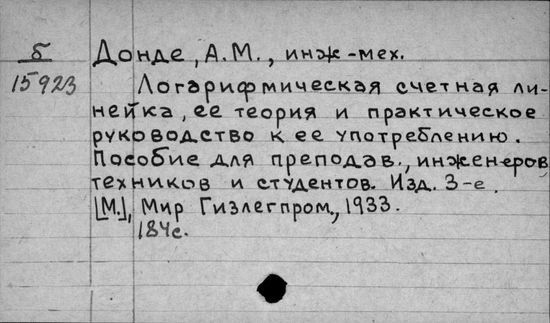 б Донде, А.М., инж-мех.
15923
Логарифмическая счетная ли-
нейка, ее теория и практическое
руководство к ее употреблению.
Пособие для преподав., инженеров,
техников и студентов. Изд. 3-е.
[М.], Мир Гизлегпром., 1933.
184с.